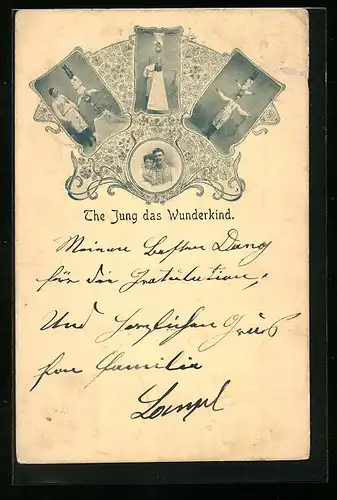 The Jung das Wunderkind.
Meinen besten Dang
für die Gratulution,
Und Herzlichen Gruß
fon Familie
Lampl